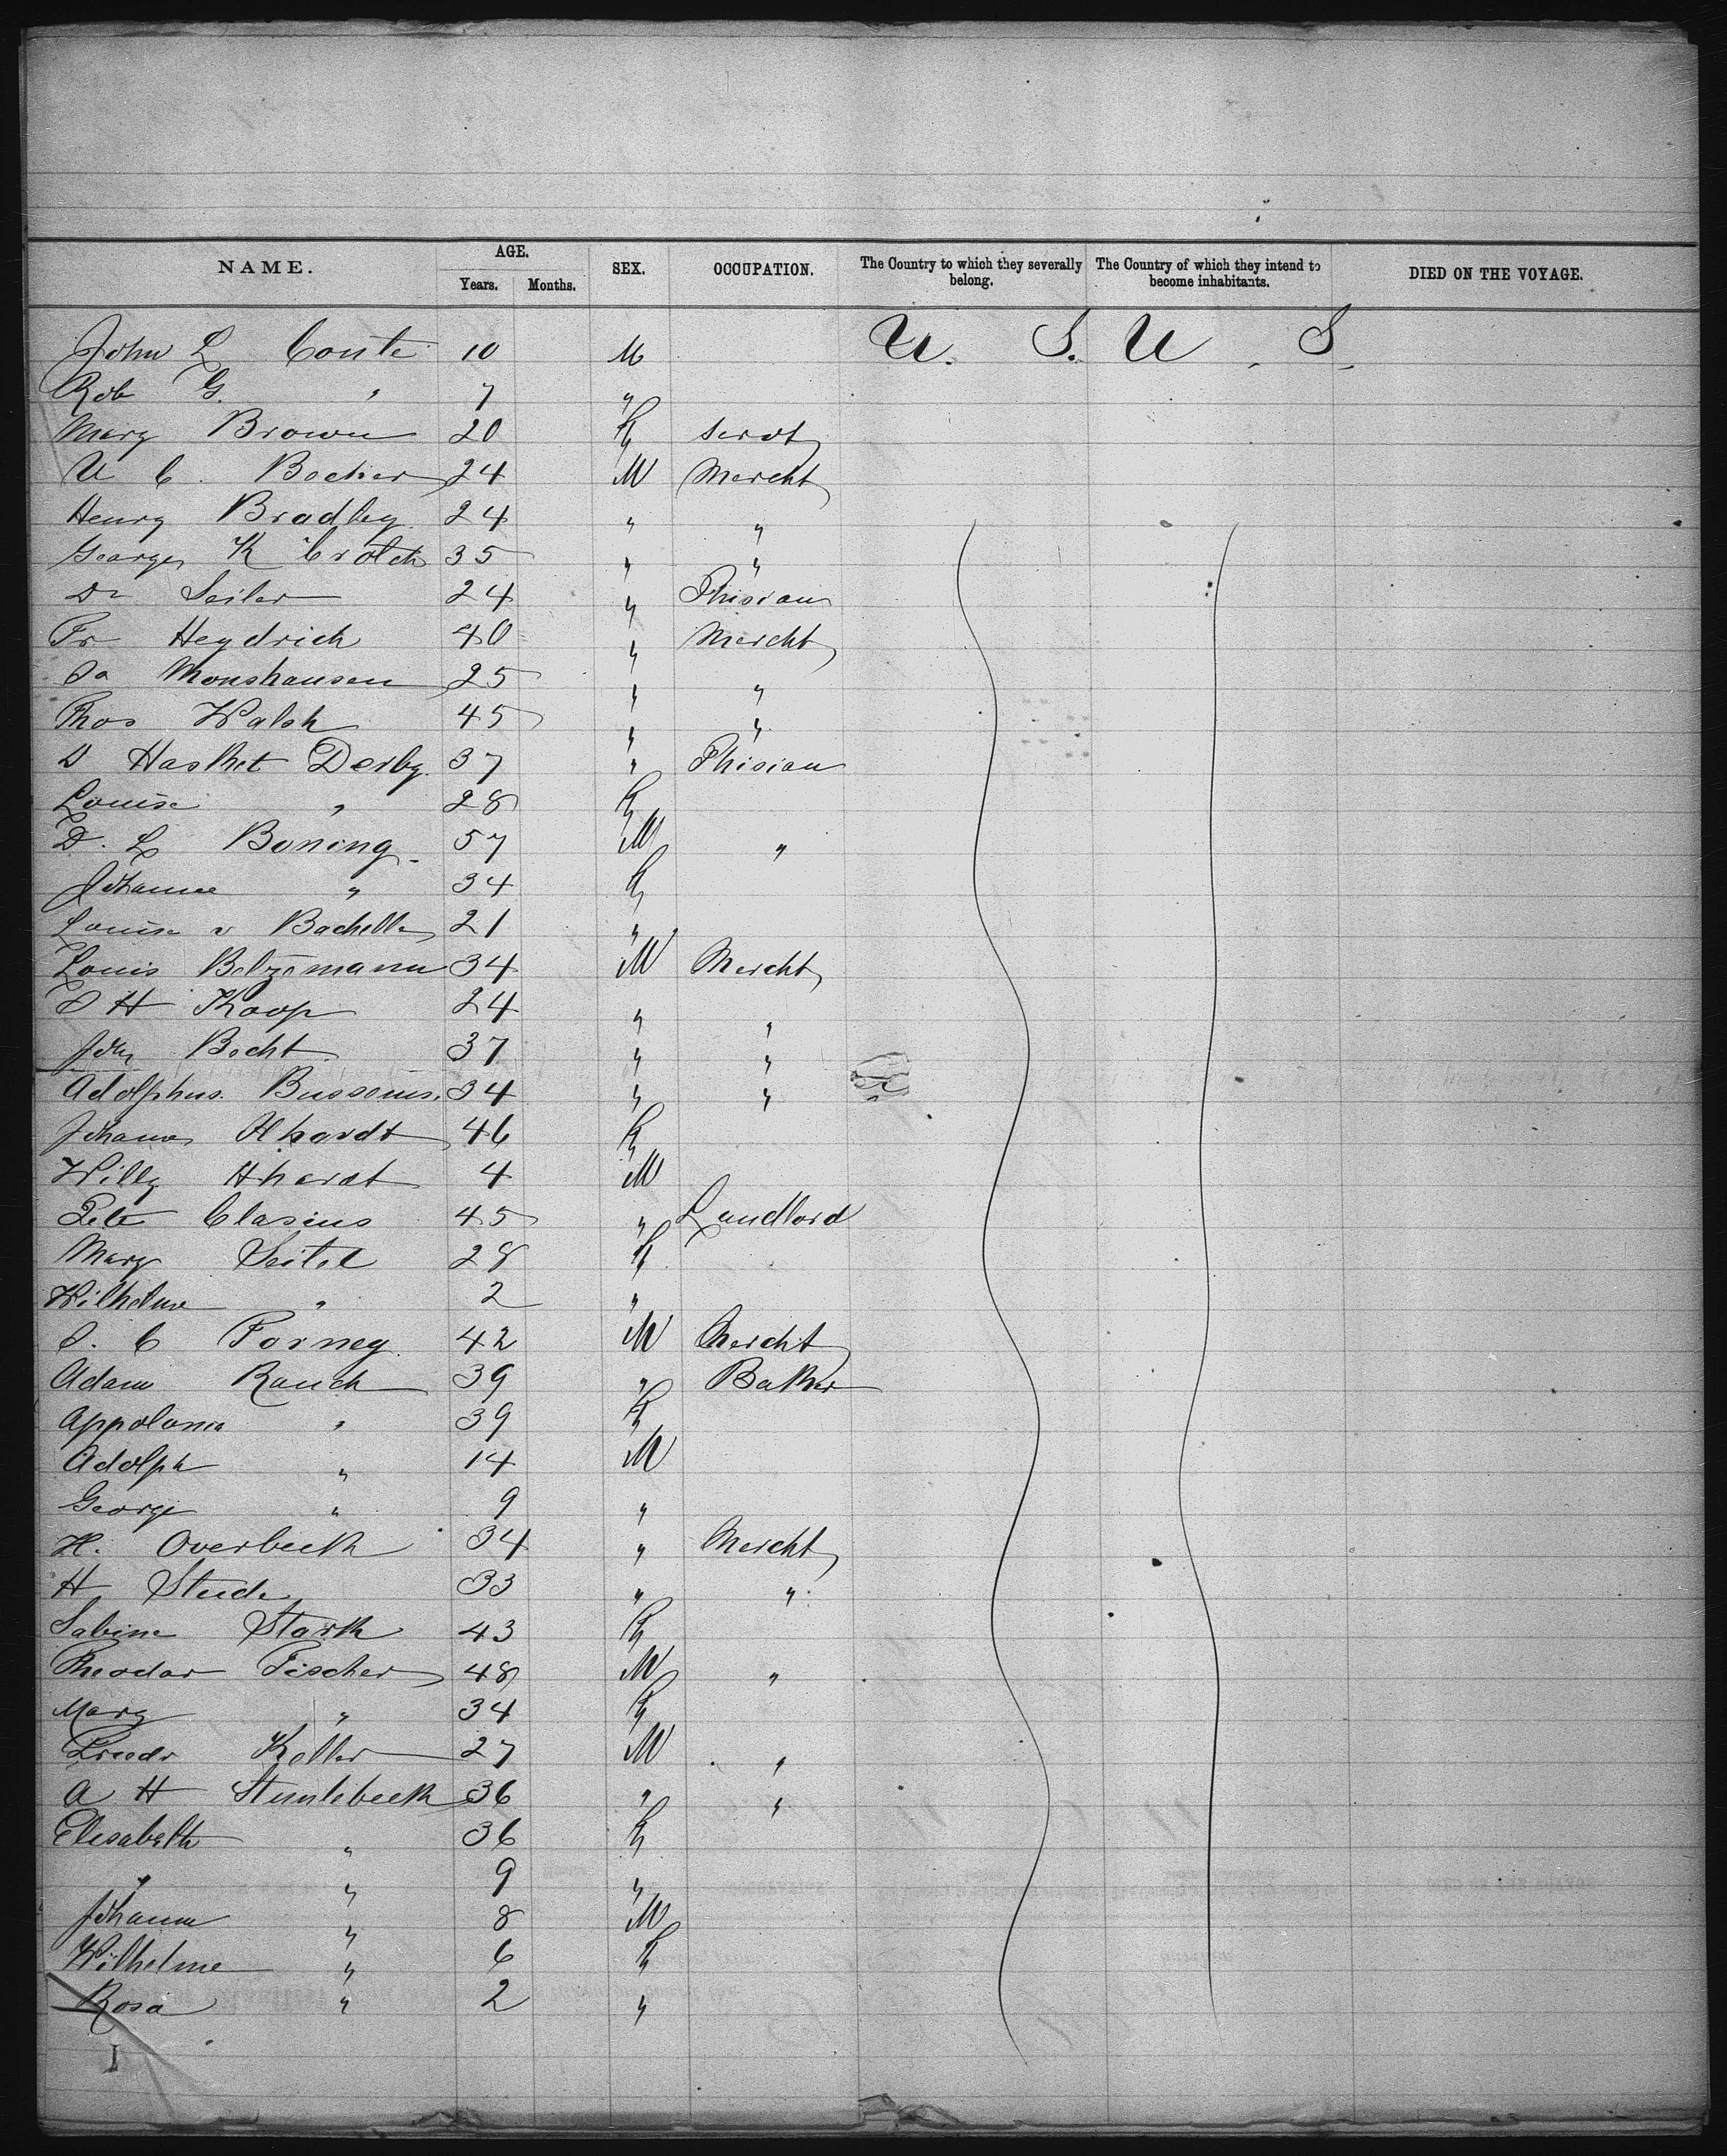 NAME. AGE. SEX. OCCUPATION. The Country to which they severally belong. The Country of which they intend to become inhabitants. DIED ON THE VOYAGE.
Years. Months.
John L Conte 10 M U. S. U. S.
Rob G. " 7 "
Mary Brown 20 F servt
U C. Becher 24 M Mercht
Henry Bradley 24 " "
George K Crotch 35 " "
Dr Seiler 24 " Phisian
Fr Heydrich 40 " Mercht
Monshausen 25 " "
Thos Walsh 45 " "
D Hasket Derby 37 " Phisian
Louise " 28 F
D. L Boning 57 M "
Johanne " 34 F
Louise v Bachelle 21 "
Louis Betzemann 34 M Mercht
H Koop 24 " "
Joh Becht 37 " "
Adolphus. Bussenius. 34 " "
Johanna Ahardt 46 F
Willy Ahardt 4 M
Pete Clasius 45 " Landlord
Mary Seitel 28 F
Wilhelme " 2 "
C Forney 42 M Mercht
Adam Rauch 39 " Baker
Appolonia " 39 F
Adolph " 14 M
George " 9 "
H. Overbeck 34 " Mercht
H Stude 33 " "
Sabine Stark 43 F
Theodor Fischer 48 M "
Mary " 34 F
Friedr Keller 27 M "
A H 36 " "
Elisabeth " 36 F
" " 9 "
Johann " 8 M
Wilhelme " 6 F
Rosa " 2 "